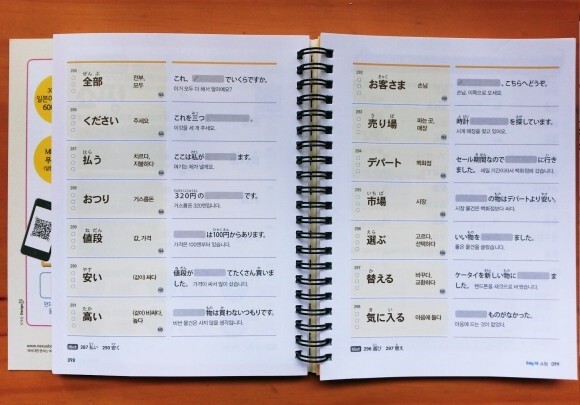 ぜんぶ
全部
전부,
모두
これ、
でいくらですか。
이거 모두 다 해서 얼마예요?
ください
주세요
これを三つ
。
이것을 세 개 주세요.
はら
払う
치르다,
지불하다
ここは私が
ます。
여기는 제가 낼게요.
おつり
거스름돈
320円の
です。
거스름돈 320엔입니다.
ねだん
値段
값, 가격
は100円からあります。
가격은 100엔부터 있습니다.
やす
安い
(값이) 싸다
値段が
てたくさん買いま
した。
가격이 싸서 많이 샀습니다.
たか
高い
(값이) 비싸다,
높다
物は買わないつもりです。
비싼 물건은 사지 않을 생각입니다.
287 払い 290 安く
098
きゃく
お客さま
손님
、こちらへどうぞ。
손님, 이쪽으로 오세요.
う ば
売り場
파는 곳,
매장
時計
を探しています。
시계 매장을 찾고 있어요.
デパート
백화점
セール期間なので
に行き
ました。
세일 기간이어서 백화점에 갔습니다.
いちば
市場
시장
の物はデパートより安い。
시장 물건은 백화점보다 싸다.
えら
選ぶ
고르다,
선택하다
いい物を
ました。
좋은 물건을 골랐습니다.
か
替える
바꾸다,
교환하다
ケータイを新しい物に
ました。
핸드폰을 새것으로 바꿨습니다.
き い
気に入る
마음에 들다
ものがなかった。
마음에 드는 것이 없었다.
296 選び 297 替え
Day 16 쇼핑
099